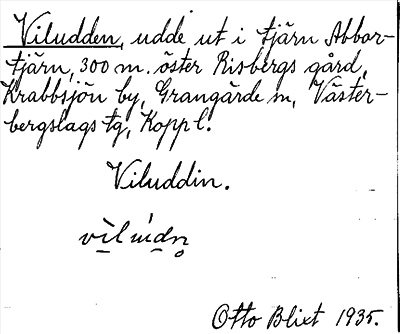 Viludden, udde ut i tjärn Abbor-
tjärn, 300 m. öster Risbergs gård,
Krabbsjön by, Grangärde sn, Väster-
bergslags tg, Kopp l.
Viluddin.